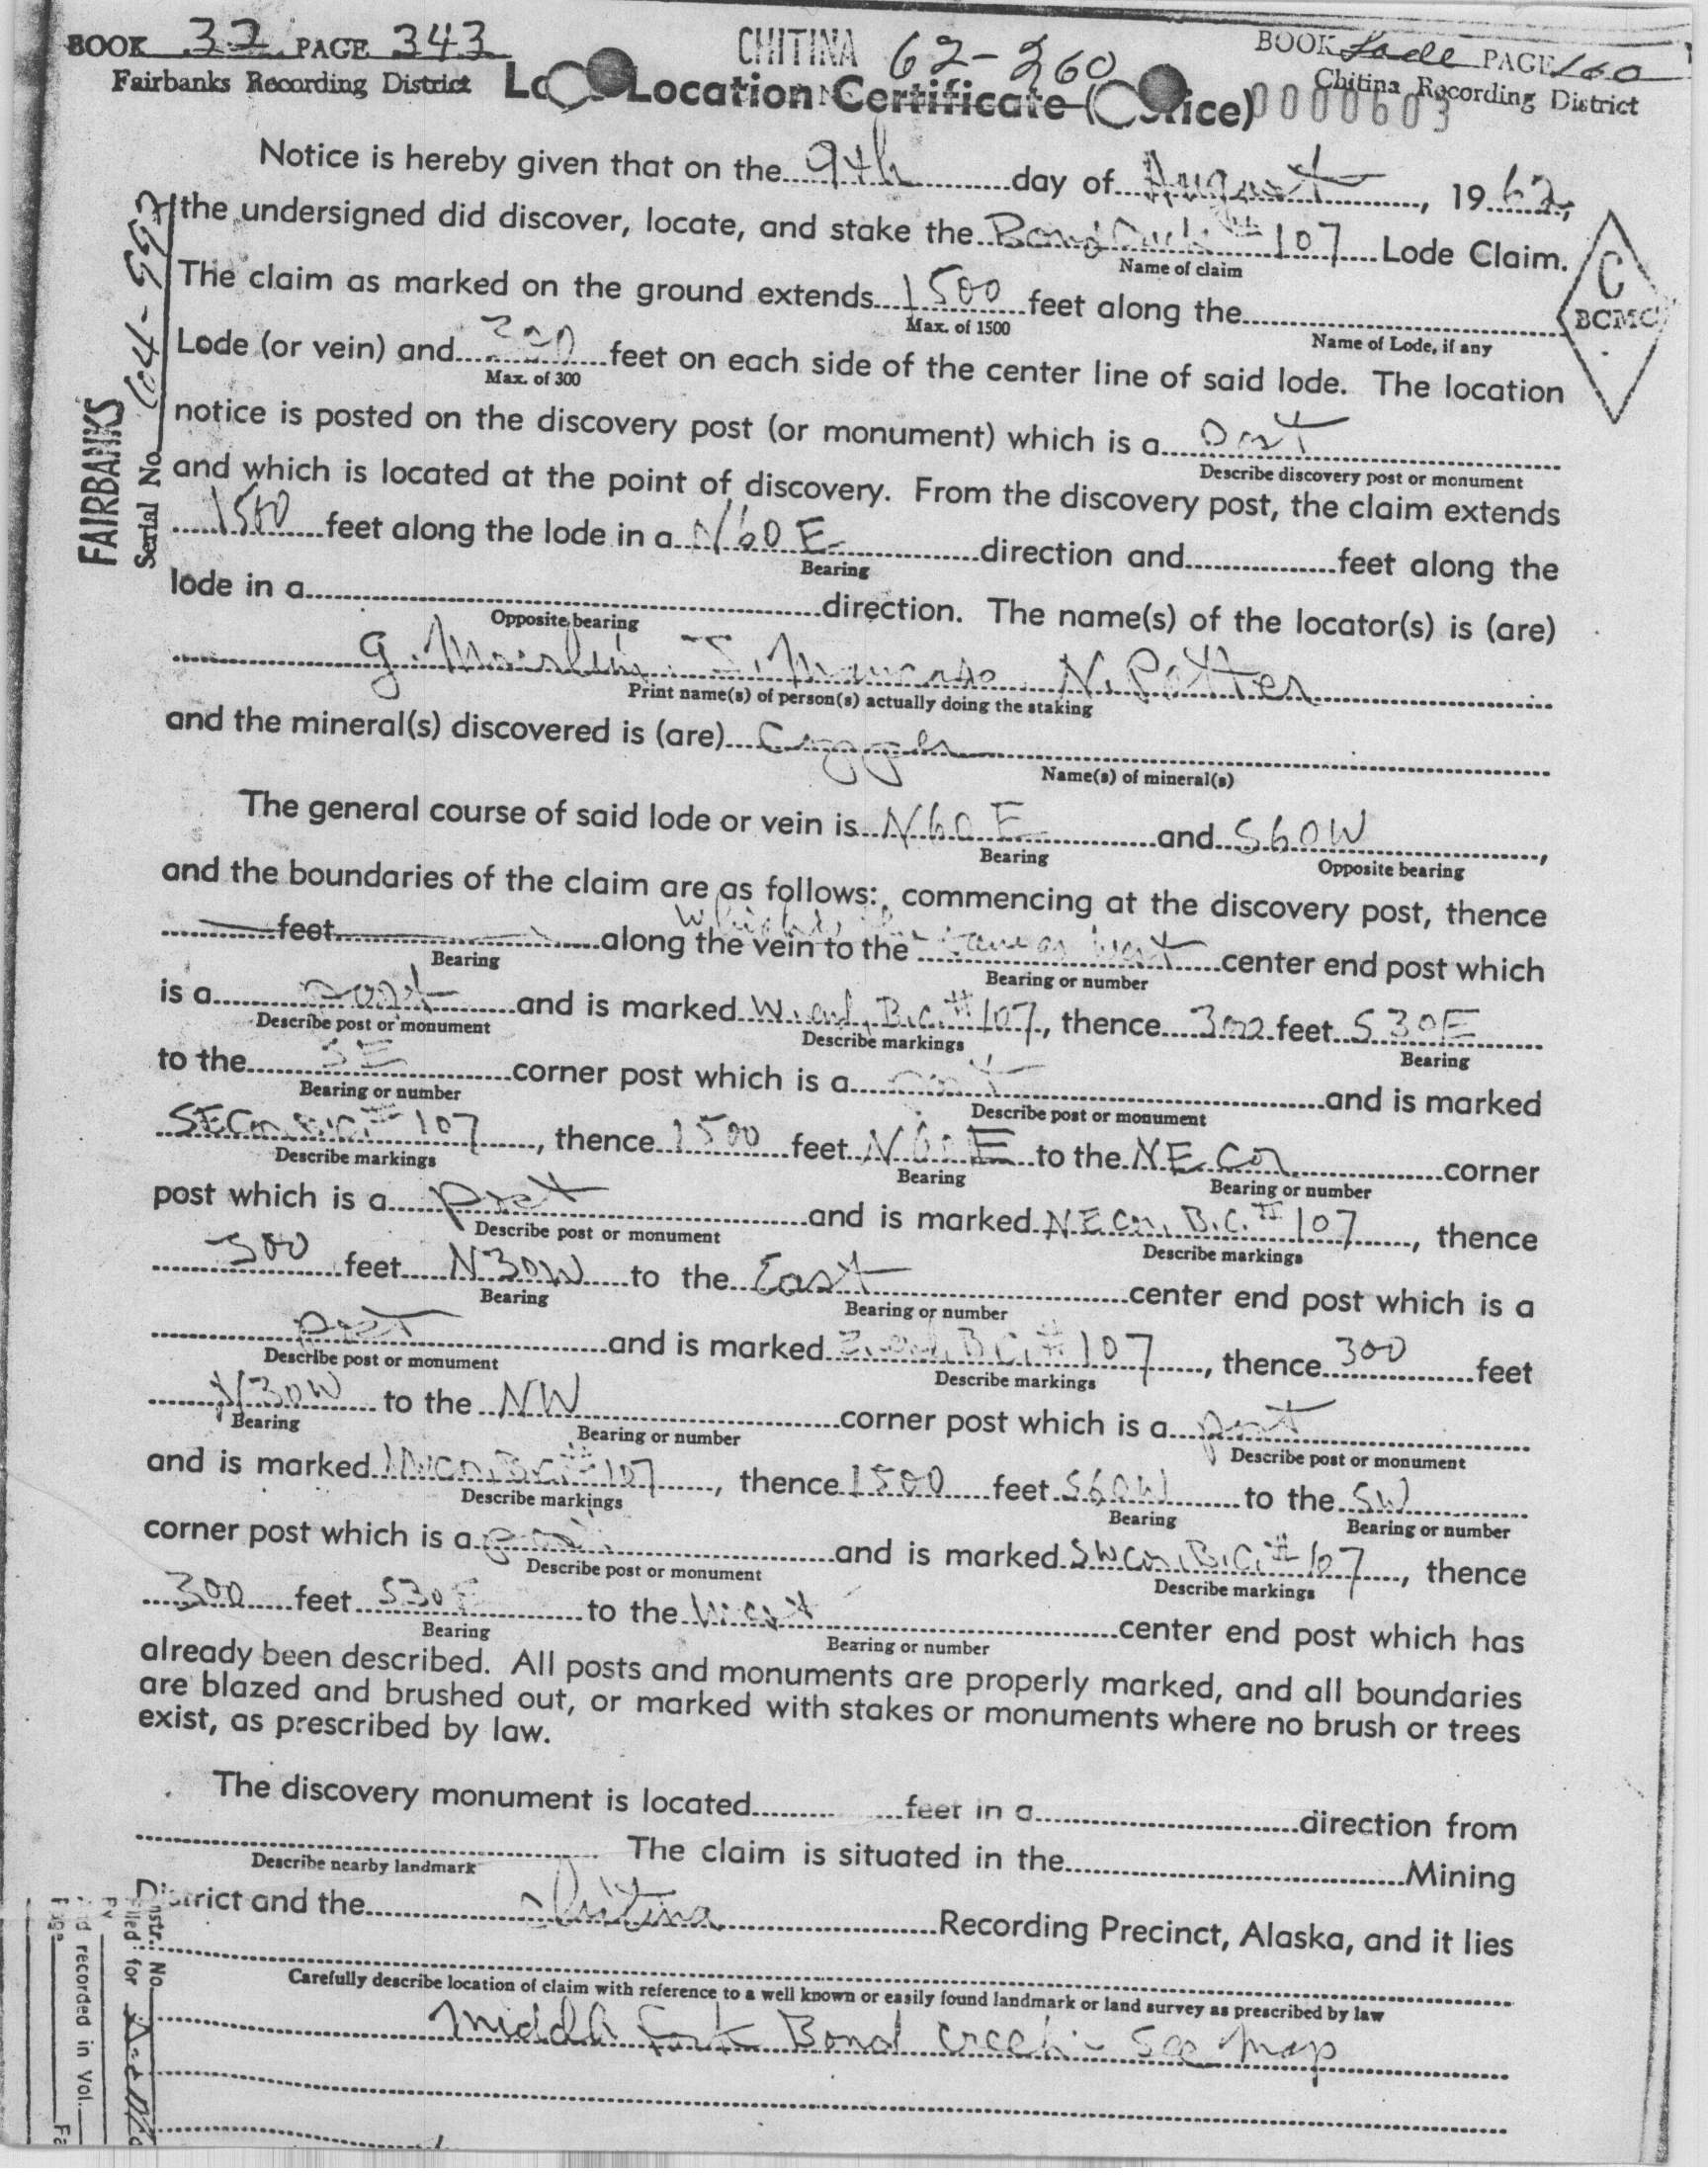 BOOK 37 PAGE 343
Fairbanks Recording District
CHITINA 62-260
BOOK Lode PAGE 160
Chitina Recording District
Location Certificate (ice)
000603
Notice is hereby given that on the 9th day of August, 1962,
the undersigned did discover, locate, and stake the Bond Creek #107 Lode Claim.
Name of claim
The claim as marked on the ground extends 1500 feet along the
Max. of 1500 Name of Lode, if any
C
BCMC
Lode (or vein) and 300 feet on each side of the center line of said lode. The location
Max. of 300
notice is posted on the discovery post (or monument) which is a post
Describe discovery post or monument
and which is located at the point of discovery. From the discovery post, the claim extends
1500 feet along the lode in a N60E direction and feet along the
Bearing
lode in a direction. The name(s) of the locator(s) is (are)
Opposite bearing
G. N. Potter
Print name(s) of person(s) actually doing the staking
and the mineral(s) discovered is (are) Copper
Name(s) of mineral(s)
The general course of said lode or vein is N60E and S60W,
Bearing Opposite bearing
and the boundaries of the claim are as follows: commencing at the discovery post, thence
which is the
feet along the vein to the same as West center end post which
Bearing Bearing or number
is a post and is marked W. end, B.C. #107, thence 300 feet S30E
Describe post or monument Describe markings Bearing
to the SE corner post which is a post and is marked
Bearing or number Describe post or monument
SECor. B.C. #107, thence 1500 feet N60E to the NE Cor corner
Describe markings Bearing Bearing or number
post which is a post and is marked NECor. B.C. #107, thence
Describe post or monument Describe markings
300 feet N30W to the East center end post which is a
Bearing Bearing or number
post and is marked E. end, B.C. #107, thence 300 feet
Describe post or monument Describe markings
N30W to the NW corner post which is a post
Bearing Bearing or number Describe post or monument
and is marked NWCor. B.C. #107, thence 1500 feet S60W to the SW
Describe markings Bearing Bearing or number
corner post which is a post and is marked SWCor. B.C. #107, thence
Describe post or monument Describe markings
300 feet S30E to the West center end post which has
Bearing Bearing or number
already been described. All posts and monuments are properly marked, and all boundaries
are blazed and brushed out, or marked with stakes or monuments where no brush or trees
exist, as prescribed by law.
The discovery monument is located feet in a direction from
The claim is situated in the Mining
Describe nearby landmark
District and the Chitina Recording Precinct, Alaska, and it lies
Carefully describe location of claim with reference to a well known or easily found landmark or land survey as prescribed by law
Middle fork Bond Creek - See Map
FAIRBANKS
Serial No. 64-
Instr. No.
Filed for
By
recorded in Vol.
Page